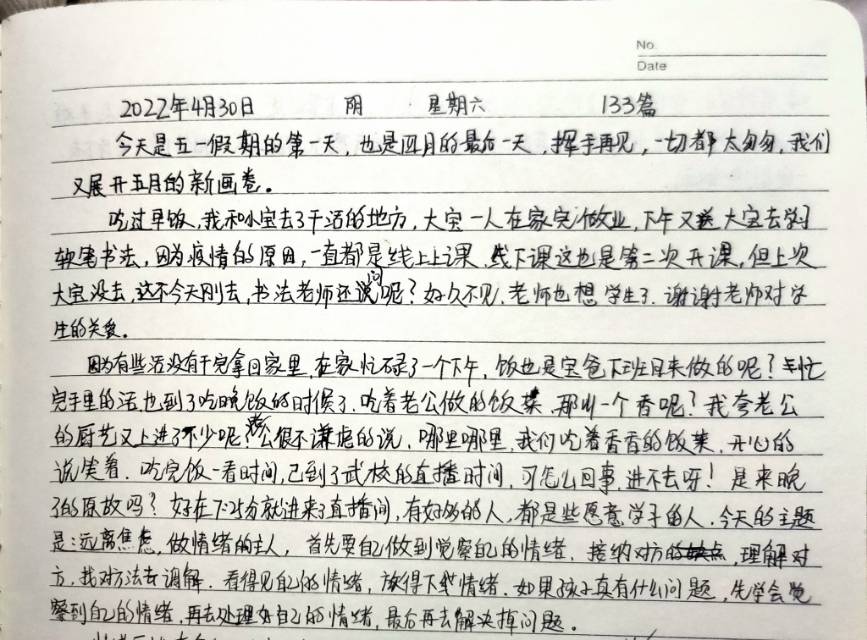 No.
Date
2022年4月30日 阴 星期六 133篇
今天是五一假期的第一天,也是四月的最后一天,挥手再见,一切都太匆匆,我们
又展开五月的新画卷。
吃过早饭,我和小宝去了干活的地方,大宝一人在家完做业,下午又送大宝去学习
软笔书法,因为疫情的原因,一直都是线上上课,线下课这也是第二次开课,但上次
大宝没去,这不今天刚去,书法老师还说问呢?好久不见,老师也想学生了.谢谢老师对学
生的关爱。
因为有些活没有干完拿回家里,在家忙碌了一个下午,饭也是宝爸下班回来做的呢?忙
完手里的活也到了吃晚饭的时候了.吃着老公做的饭菜,那叫一个香呢?我夸老公
的厨艺又上进了不少呢?老公很不谦虑的说,哪里哪里,我们吃着香香的饭菜,开心的
说笑着.吃完饭一看时间,已到了武校的直播时间,可怎么回事,进不去呀!是来晚
了的原故吗?好在下25分就进来了直播间,有好多的人,都是些愿意学子的人.今天的主题
是:远离焦虑,做情绪的主人,首先要自己做到觉察自己的情绪.接纳对方的缺点,理解对
方,找对方法去调解.看得见自己的情绪,放得下情绪.如果孩子真有什么问题,先学会觉
察到自己的情绪,再去处理好自己的情绪,最后再去解决掉问题。